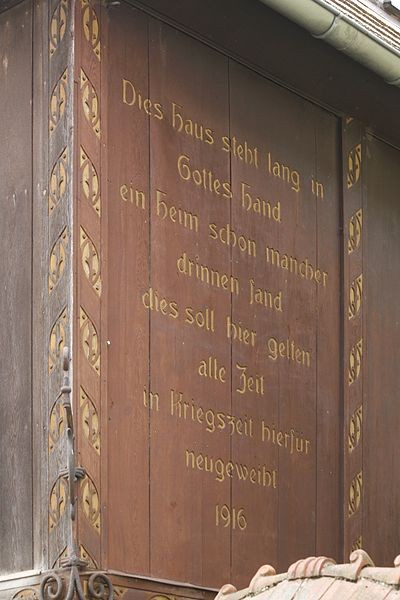 Dies Haus steht lang in
Gottes Hand
ein Heim schon mancher
drinnen fand
dies soll hier gelten
alle Zeit
in Kriegszeit hierfür
neugeweiht
1916